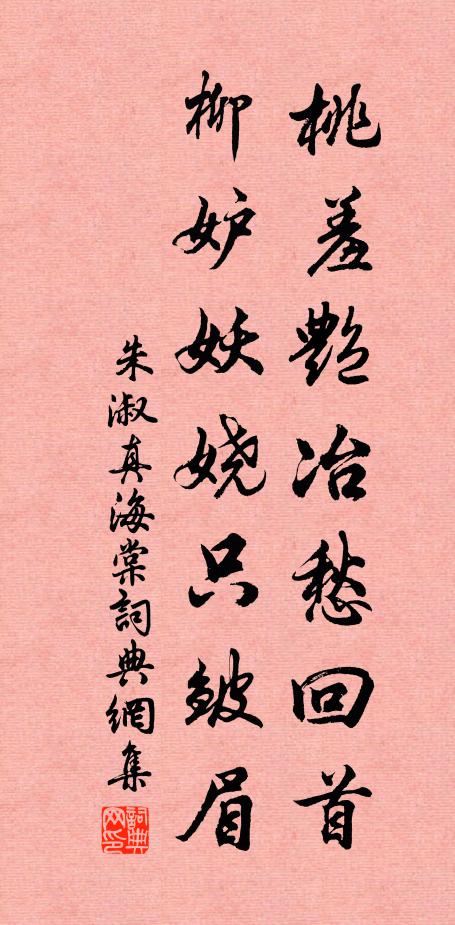 桃羞艷冶愁回首
柳妒妖嬈只皺眉
朱淑真海棠詞典網集
詞典网印